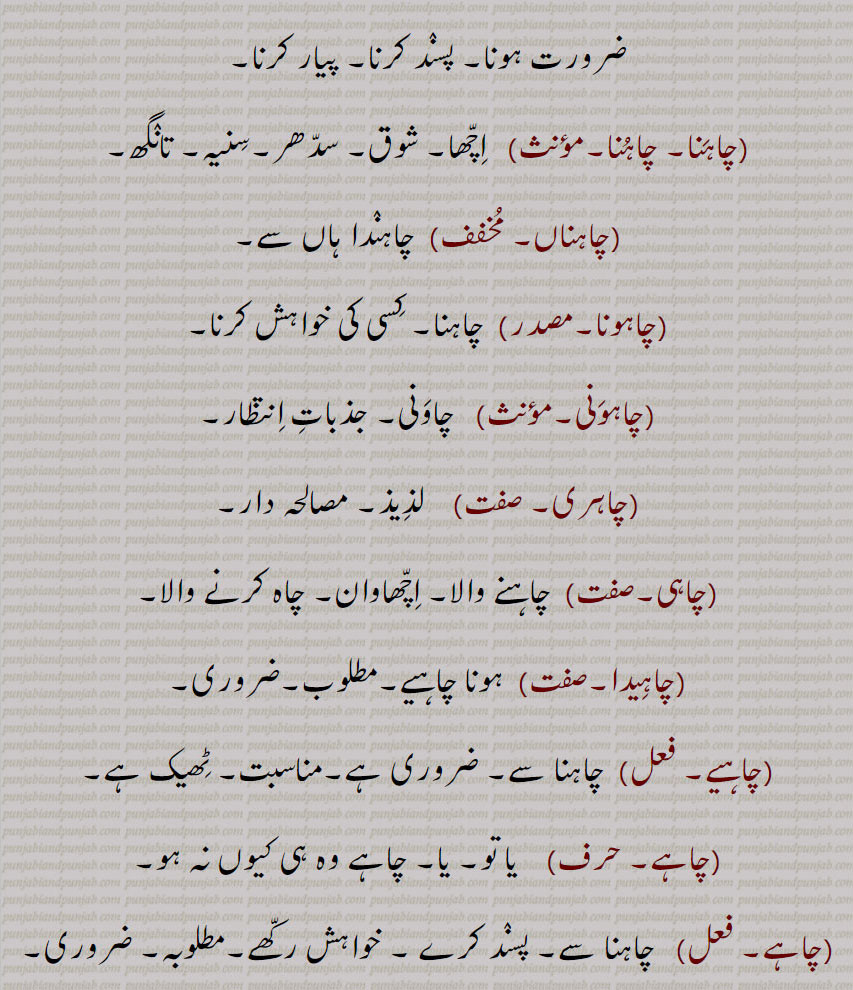 ضرورت ہونا۔ پسنْد کرنا۔ پیار کرنا۔
(چاہَنا۔ چاہُنا۔مؤنث) اِچّھا۔ شوق۔ سدّھر۔سِنیہ۔ تانْگھ۔
(چاہناں۔ مُخفف) چاہنْدا ہاں سے۔
(چاہونا۔مصدر) چاہنا۔ کِسی کی خواہش کرنا۔
(چاہوَنی۔مؤنث) چاوَنی۔ جذباتِ اِنتظار۔
(چاہری۔ صفت) لذِیذ۔ مصالحہ دار۔
(چاہی۔صفت) چاہنے والا۔ اِچّھاوان۔ چاہ کرنے والا۔
(چاہِیدا۔صفت) ہونا چاہیے۔مطلوب۔ضروری۔
(چاہیے۔ فعل) چاہنا سے۔ ضروری ہے۔مناسبت۔ ٹِھیک ہے۔
(چاہے۔ حرف) یا تو۔ یا۔ چاہے وہ ہی کیوں نہ ہو۔
(چاہے۔ فعل) چاہنا سے۔ پسنْد کرے ۔ خواہش رکّھے۔مطلوبہ۔ ضروری۔